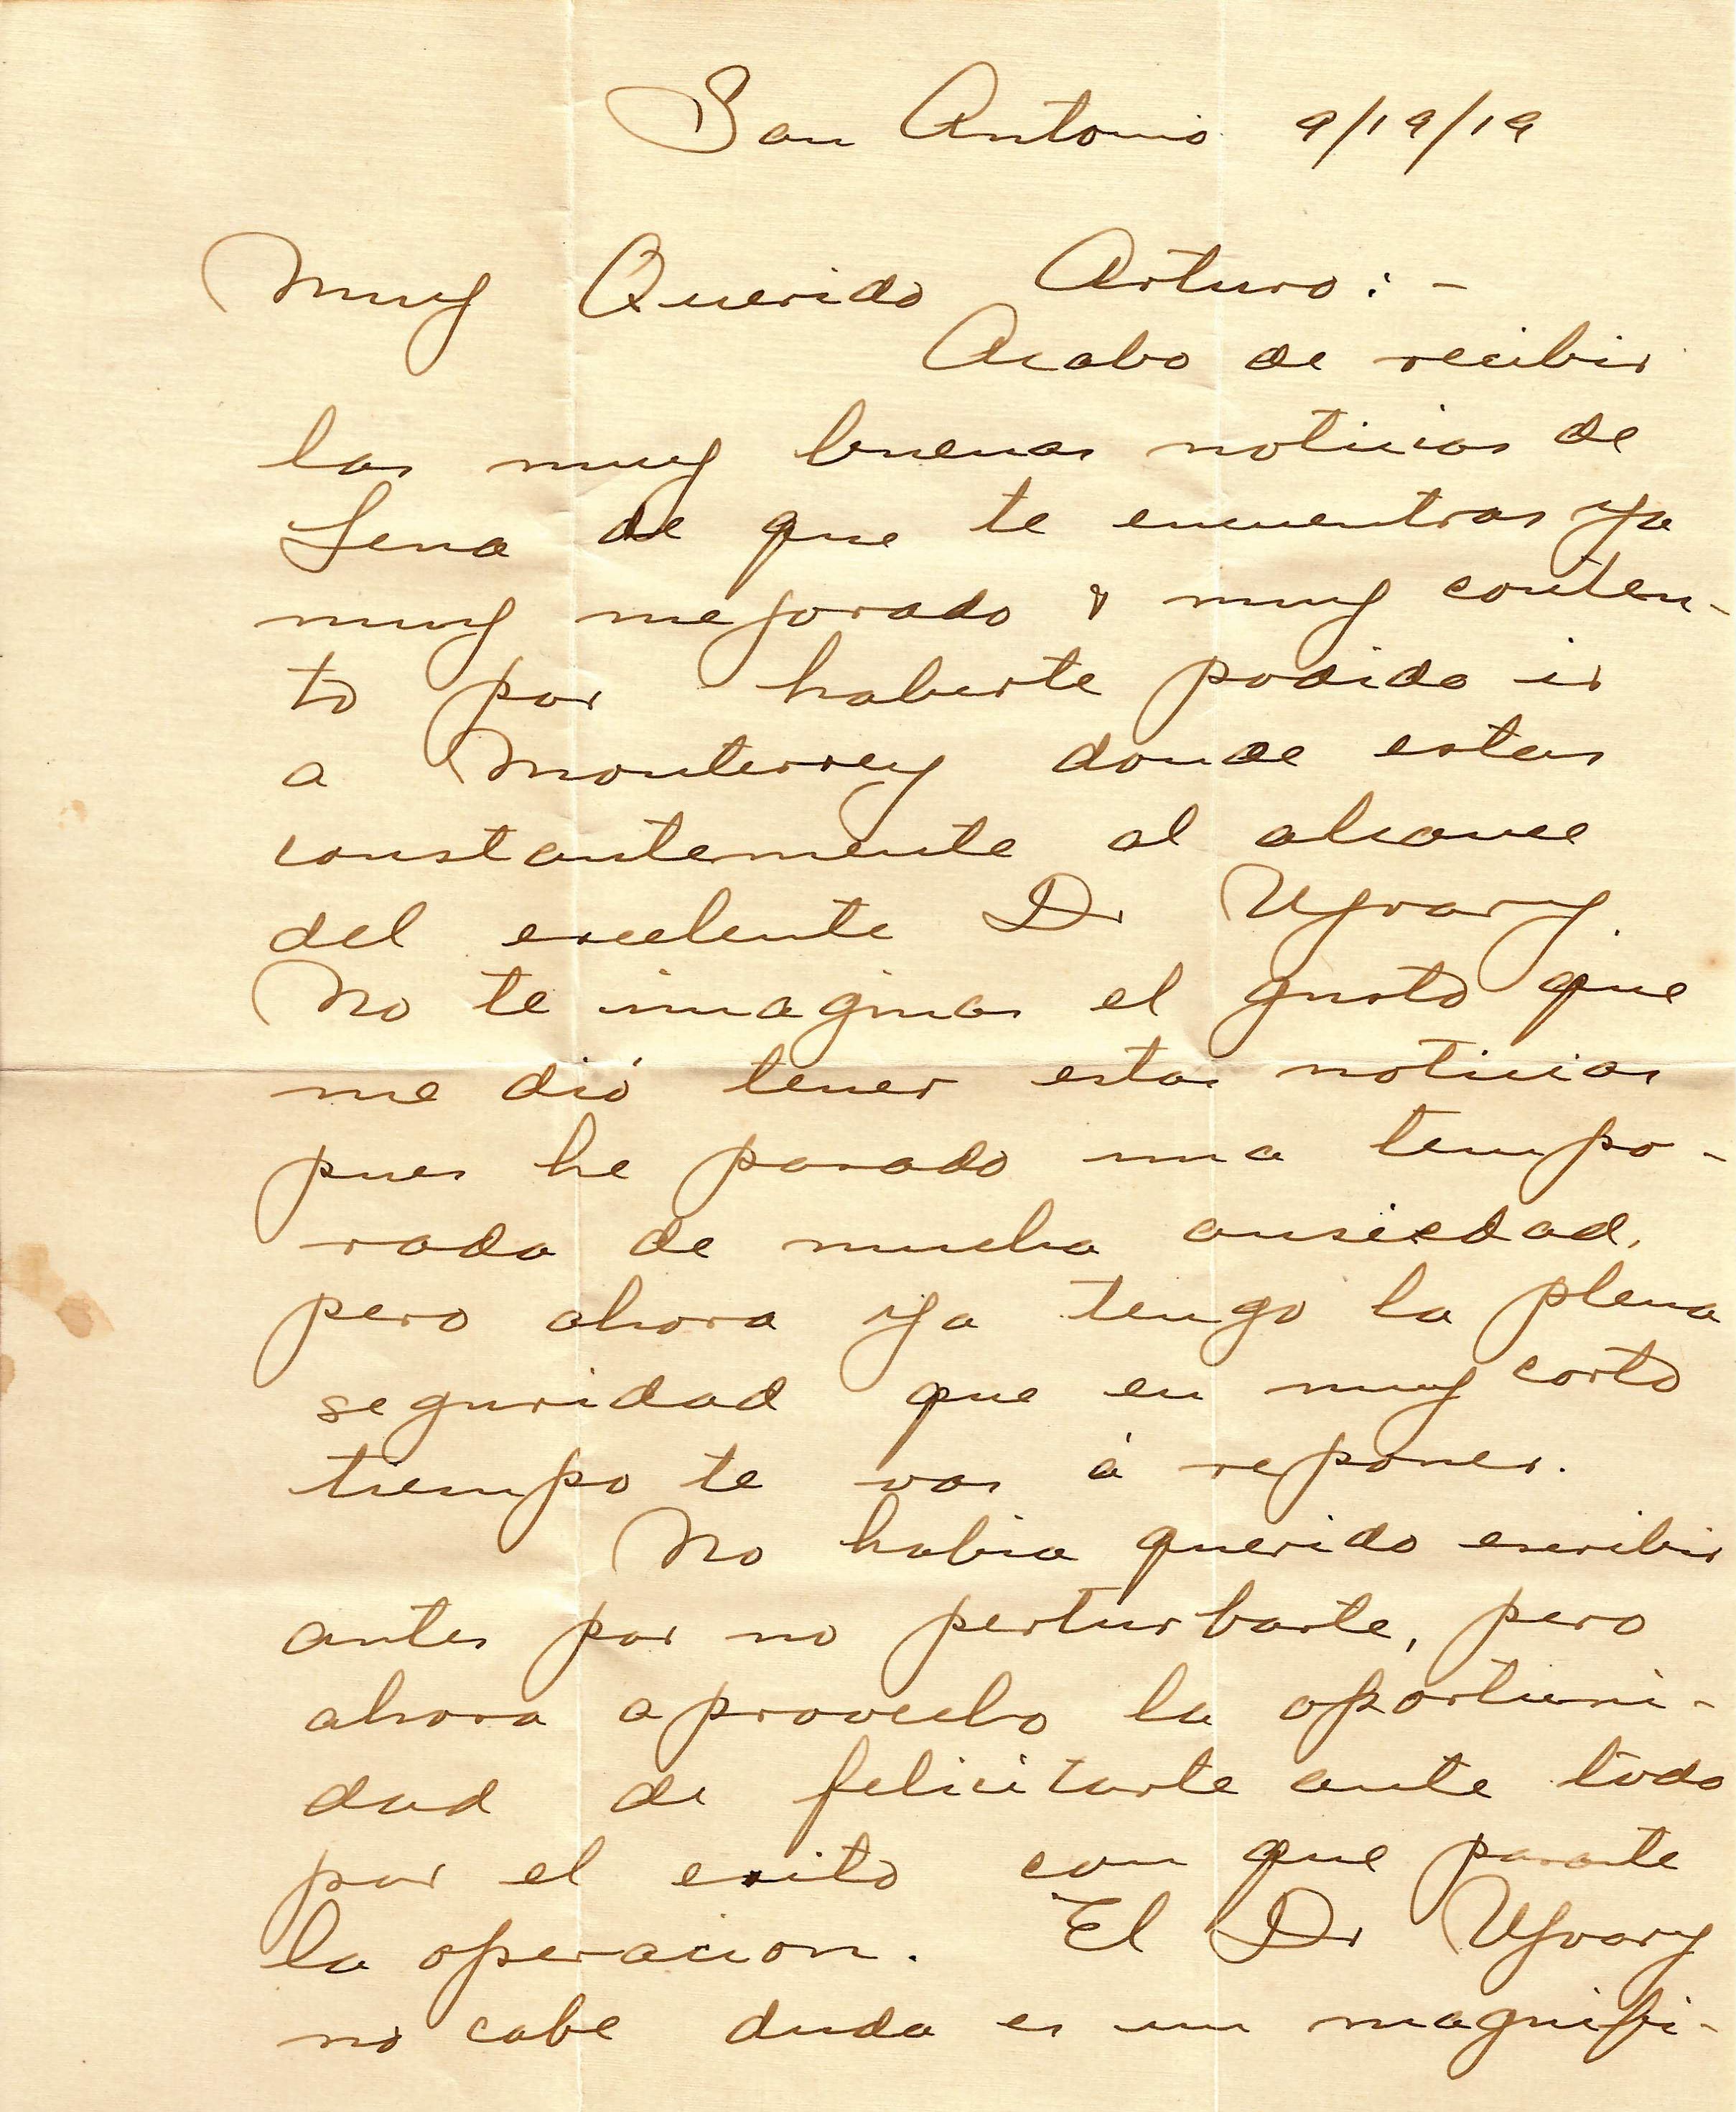 San Antonio 9/19/19
Muy Querido Arturo: -
Acabo de recibir
las muy buenas noticias de
Lena de que te encuentras ya
muy mejorado & muy conten-
to por haberte podido ir
a Monterrey donde estas
constantemente al alcance
del excelente Dr Ujvary.
No te imaginas el gusto que
me dió tener estas noticias
pues he pasado una tempo-
rada de mucha ansiedad,
pero ahora ya tengo la plena
seguridad que en muy corto
tiempo te vas á reponer.
No habia querido escribir
antes por no perturbarte, pero
ahora aprovecho la oportuni-
dad de felicitarte ante todo
por el exito con que pasaste
la operacion. El Dr Ujvary
no cabe duda es un magnifi-